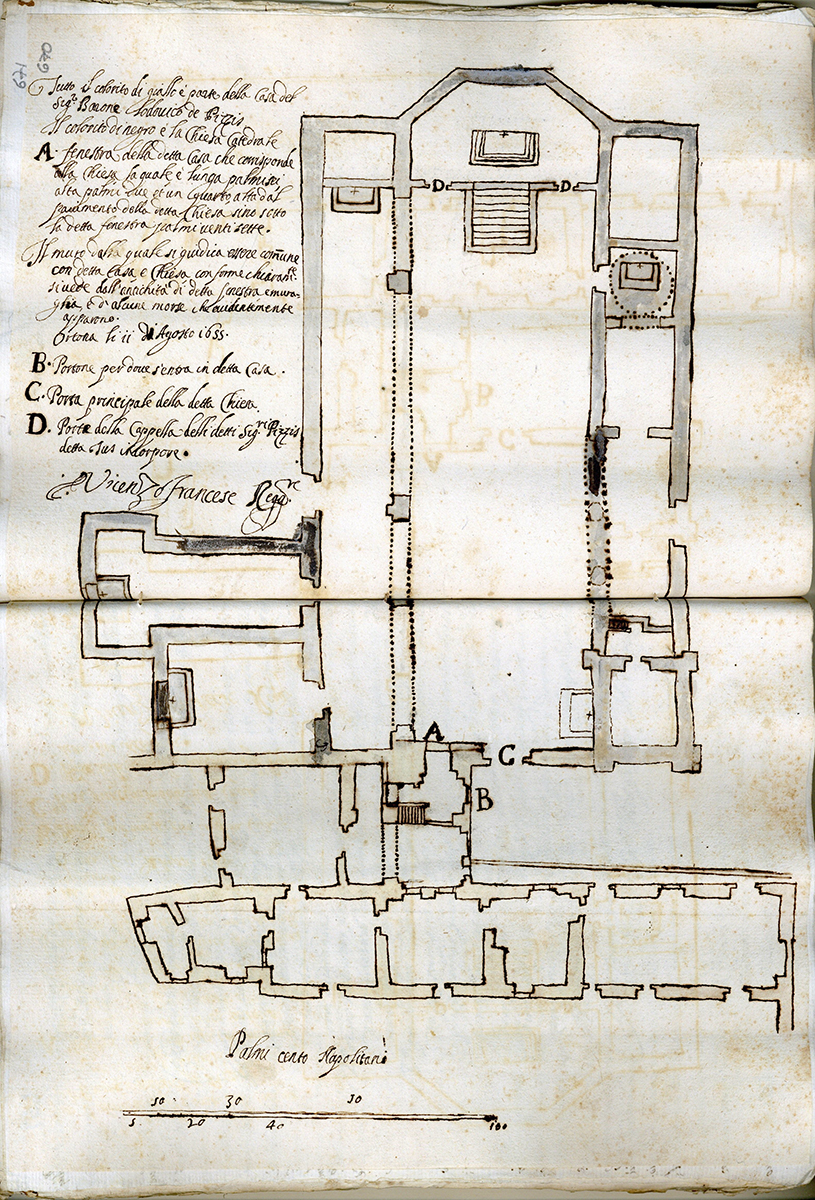 671
670
Tutto il colorito di giallo è parte della Casa del
Sig.r Barone Lodovico de Pizzis
Il colorito di negro è la Chiesa Catedrale
A. fenestra della detta Casa che corrisponde
alla Chiesa la quale è lunga palmi sei
alta palmi due et un quarto alta dal
pavimento della detta Chiesa sino sotto
la detta fenestra palmi venti sette.
Il muro dalla quale si giudica essere com̄une
con detta Casa e Chiesa conforme chiaram.te
si vede dall'antichità di detta fenestra e mura-
glia, e d'alcune morse che evidentemente
apparono.
Ortona li 11 di Agosto 1655.
B. Portone per dove s'entra in detta Casa.
C. Porta principale della detta Chiesa
D. Porte della Cappella delli detti Sig.ri Pizzis
detta
Vicenzo Francese
D
D
A
C
B
Palmi cento Napolitani
10
30
50
5
20
40
100